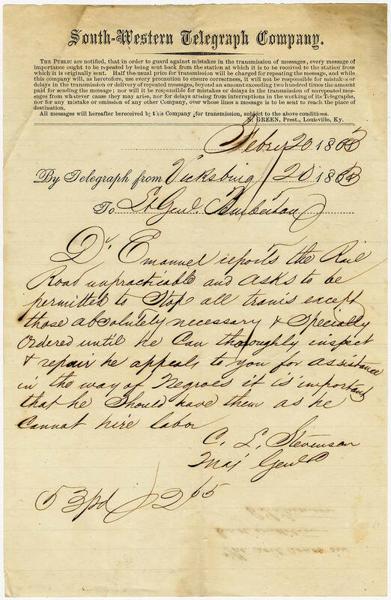 South-Western Telegraph Company.
THE PUBLIC are notified, that in order to guard against mistakes in the transmission of messages, every message of
importance ought to be repeated by being sent back from the station at which it is to be received to the station from
which it is originally sent. Half the usual price for transmission will be charged for repeating the message, and while
this company will, as heretofore, use every precaution to ensure correctness, it will not be responsible for mistakes or
delays in the transmission or delivery of repeated messages, beyond an amount exceeding two hundred times the amount
paid for sending the message; nor will it be responsible for mistakes or delays in the transmission of unrepeated messages
from whatever cause they may arise, nor for delays arising from interruptions in the working of its Telegraphs,
nor for any mistake or omission of any other Company, over whose lines a message is to be sent to reach the place of
destination.
All messages will hereafter be received by this Company for transmission, subject to the above conditions.
GREEN, Prest., Louisville, Ky.
Febry 20 1863
By Telegraph from Vicksburg 20 1863
To Lt Genl. Pemberton
Dr. Emanuel reports the Rail
Road unpracticable and asks to be
permitted to Stop all trains except
those absolutely necessary & Specially
Ordered until he Can thoroughly inspect
& repair he appeals to you for assistance
in the way of Negroes it is important
that he Should have them as he
Cannot hire labor
C. L. Stevenson
Maj Genl
53 pd 265